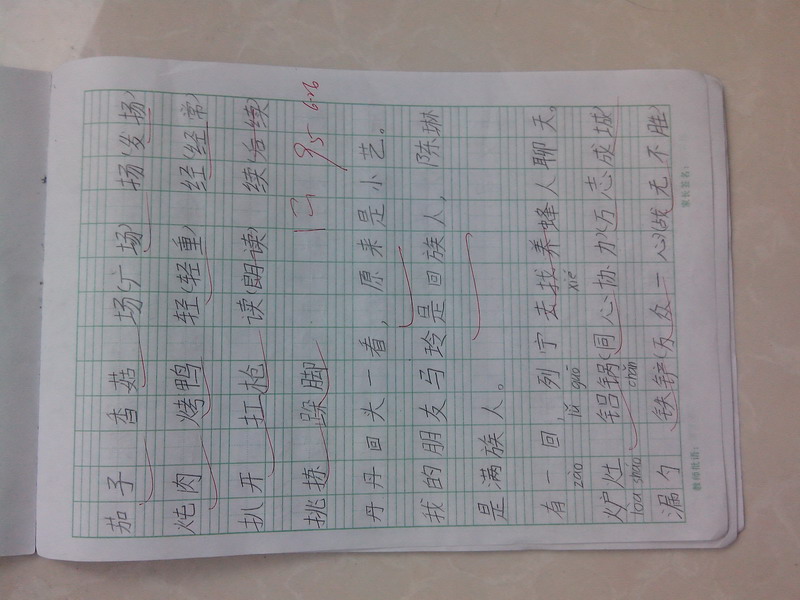 茄子 香菇 场(广场) 扬(发扬)
炖肉 烤鸭 轻(轻重) 经(经常)
扒开 扛枪 读(朗读) 续(后续)
挑拣 跺脚
95 6.26
丹丹回头一看，原来是小艺。
我的朋友马玲是回族人，陈琳
是满族人。
有一回，列宁去找养蜂人聊天。
zào lǚ guō xié
炉灶 铝锅(同心协力)(万志成城)
lòu sháo chǎn
漏勺 铁铲(万众一心)(战无不胜)
教师批语： 家长签名：